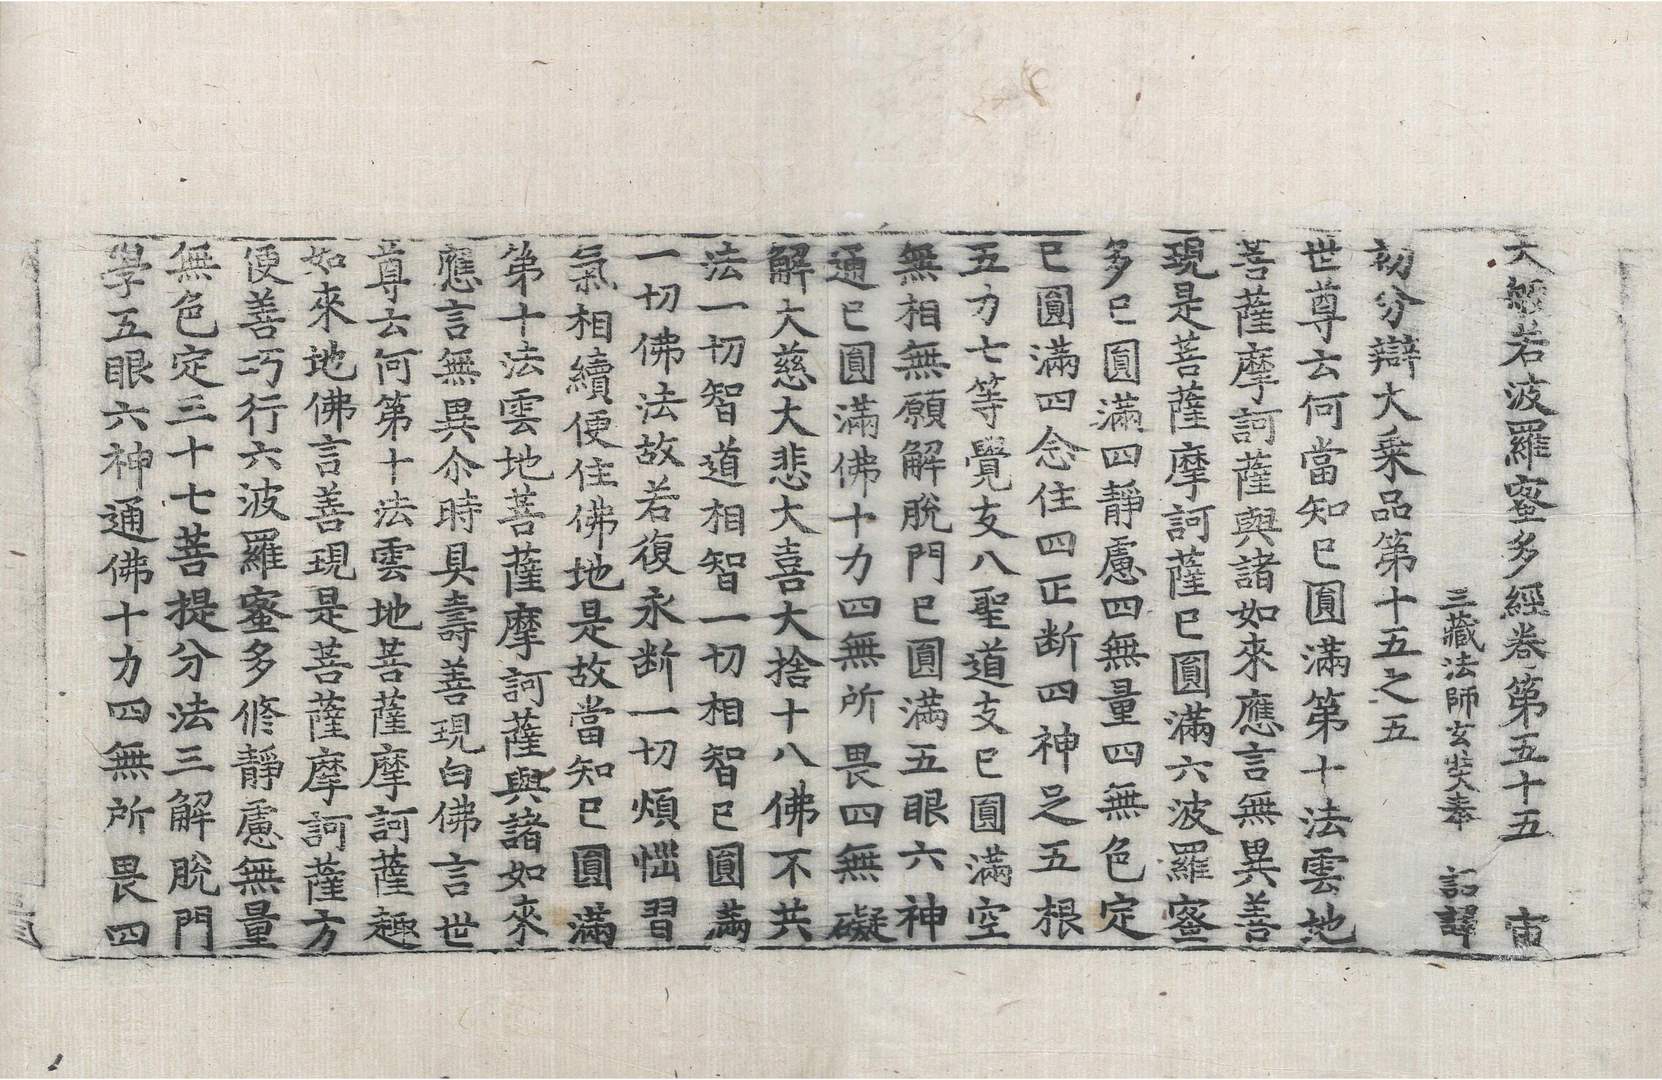 大般若波羅蜜多經卷第五十五　宙
三藏法師玄奘奉　詔譯
初分辯大乗品第十五之五
世尊云何當知已圓滿第十法雲地
菩薩摩訶薩與諸如來應言無異善
現是菩薩摩訶薩已圓滿六波羅蜜
多已圓滿四靜慮四無量四無色定
已圓滿四念住四正断四神足五根
五力七等覺支八聖道支已圓滿空
無相無願解脫門已圓满五眼六神
通已圓滿佛十力四無所畏四無礙
解大慈大悲大喜大捨十八佛不共
法一切智道相智一切相智已圓满
一切佛法故若復永断一切煩惱習
氣相續便住佛地是故當知已圓滿
第十法雲地菩薩摩訶薩與諸如來
應言無異尒時具壽善現白佛言世
尊云何第十法雲地菩薩摩訶薩趣
如來地佛言善現是菩薩摩訶薩方
便善巧行六波羅蜜多修靜慮無量
無色定三十七菩提分法三解脫門
學五眼六神通佛十力四無所畏四